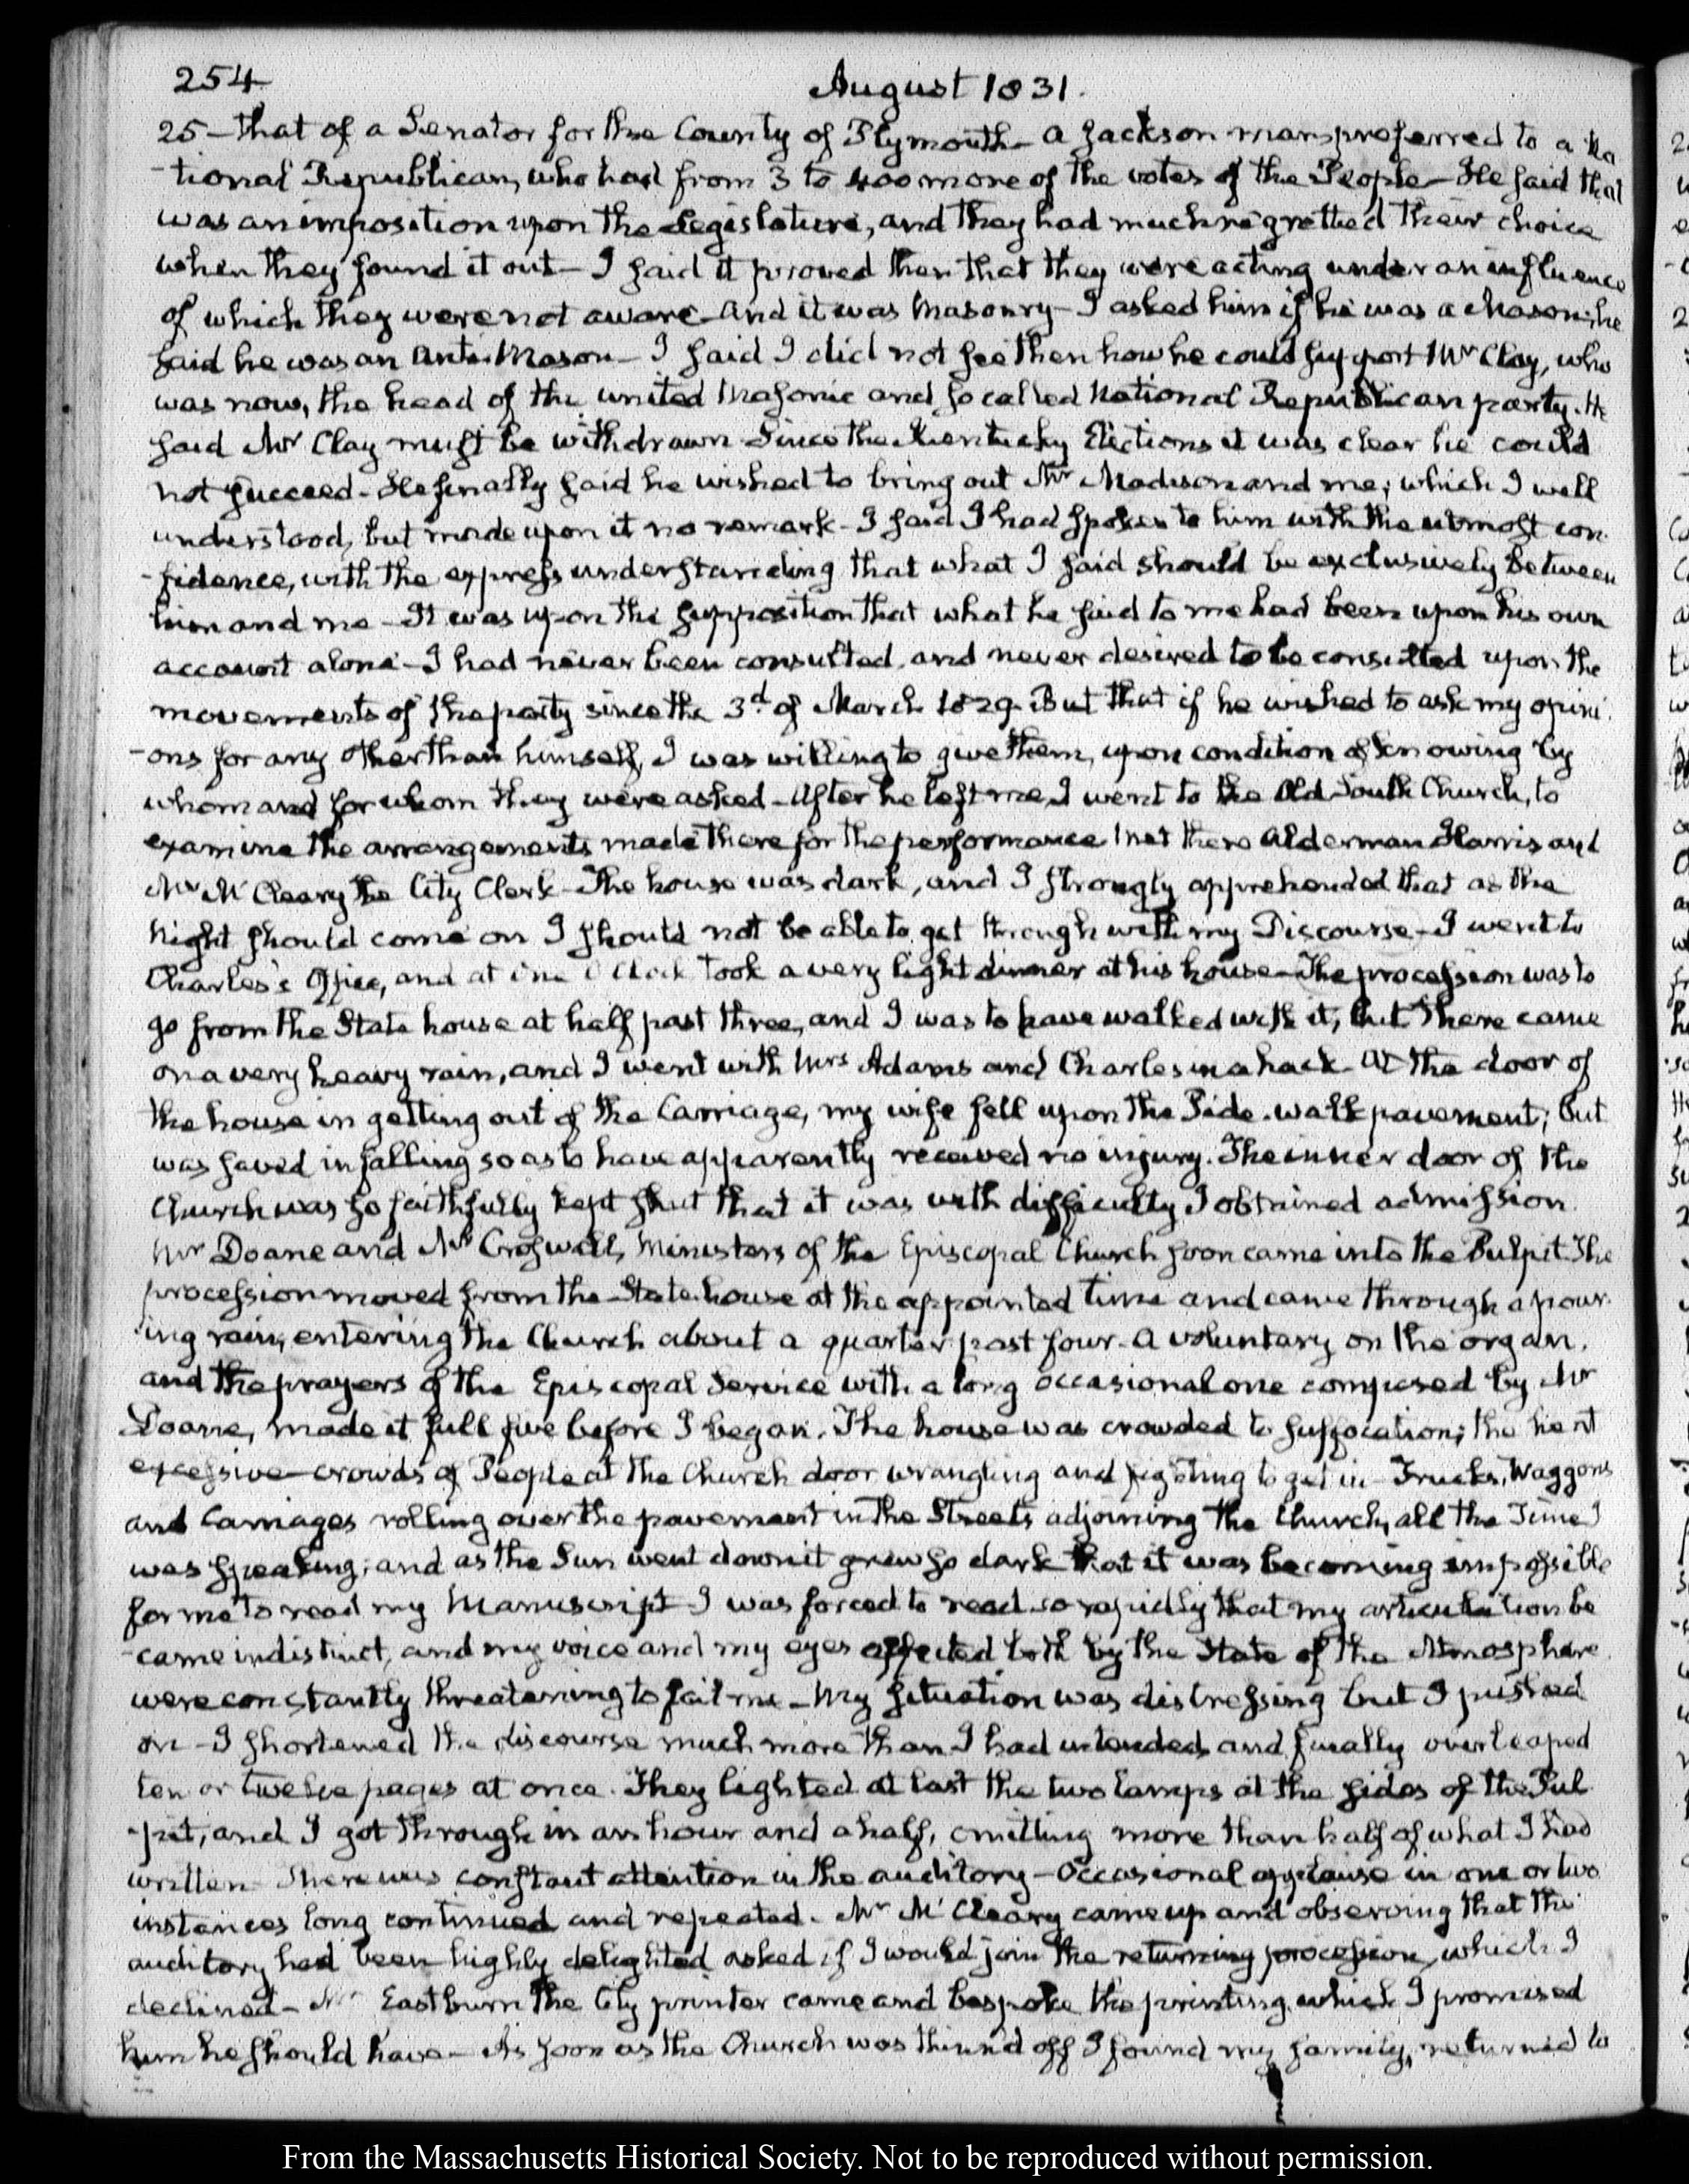 254
August 1831.
25 - that of a Senator for the County of Plymouth - a Jackson man preferred to a Na
-tional Republican, who had from 3 to 400 more of the votes of the People - He said that
was an imposition upon the Legislature, and they had much regretted their choice
when they found it out - I said it proved then that they were acting under an influence
of which they were not aware - And it was Masonry - I asked him if he was a Mason; he
said he was an Anti-Mason - I said I did not see then how he could support Mr Clay, who
was now, the head of the united Masonic and so called National Republican party. He
said Mr Clay must be withdrawn - Since the Kentucky Elections it was clear he could
not succeed - He finally said he wished to bring out Mr Madison and me; which I well
understood, but made upon it no remark - I said I had spoken to him with the utmost con-
-fidence, with the express understanding that what I said should be exclusively between
him and me - It was upon the supposition that what he said to me had been upon his own
account alone - I had never been consulted, and never desired to be consulted upon the
movements of the party since the 3d of March 1829. But that if he wished to ask my opini-
-ons for any other than himself, I was willing to give them, upon condition of knowing by
whom and for whom they were asked - After he left me, I went to the Old South Church, to
examine the arrangements made there for the performance. met there Alderman Harris and
Mr McCleary the City Clerk - The house was dark, and I strongly apprehended that as the
Night should come on I should not be able to get through with my Discourse - I went to
Charles's Office, and at one O'Clock took a very light dinner at his house - The procession was to
go from the State house at half past three, and I was to have walked with it, but there came
on a very heavy rain, and I went with Mrs Adams and Charles in a hack - At the door of
the house in getting out of the Carriage, my wife fell upon the Side-walk pavement; but
was saved in falling so as to have apparently received no injury. The inner door of the
Church was so faithfully kept shut that it was with difficulty I obtained admission.
Mr Doane and Mr Croswell, Ministers of the Episcopal Church soon came into the Pulpit. The
procession moved from the State-house at the appointed time and came through a pour-
-ing rain, entering the Church about a quarter past four - A voluntary on the organ,
and the prayers of the Episcopal Service with a long occasional one composed by Mr
Doane, made it full five before I began. The house was crowded to suffocation; the heat
excessive - crowds of People at the Church door wrangling and fighting to get in - Trucks, Waggons
and Carriages rolling over the pavement in the Streets adjoining the Church, all the Time I
was speaking; and as the Sun went down it grew so dark that it was becoming impossible
for me to read my Manuscript - I was forced to read so rapidly that my articulation be
-came indistinct, and my voice and my eyes affected both by the State of the Atmosphere
were constantly threatening to fail me - My situation was distressing but I pushed
on - I shortened the discourse much more than I had intended and finally overleaped
ten or twelve pages at once. They lighted at last the two lamps at the sides of the Pul
-pit, and I got through in an hour and a half, omitting more than half of what I had
written - There was constant attention in the auditory - Occasional applause in one or two
instances long continued and repeated. Mr McCleary came up and observing that the
auditory had been highly delighted, asked if I would join the returning procession, which I
declined - Mr Eastburn the City printer came and bespoke the printing, which I promised
him he should have - As soon as the Church was thinn'd off I found my family, returned to
From the Massachusetts Historical Society. Not to be reproduced without permission.